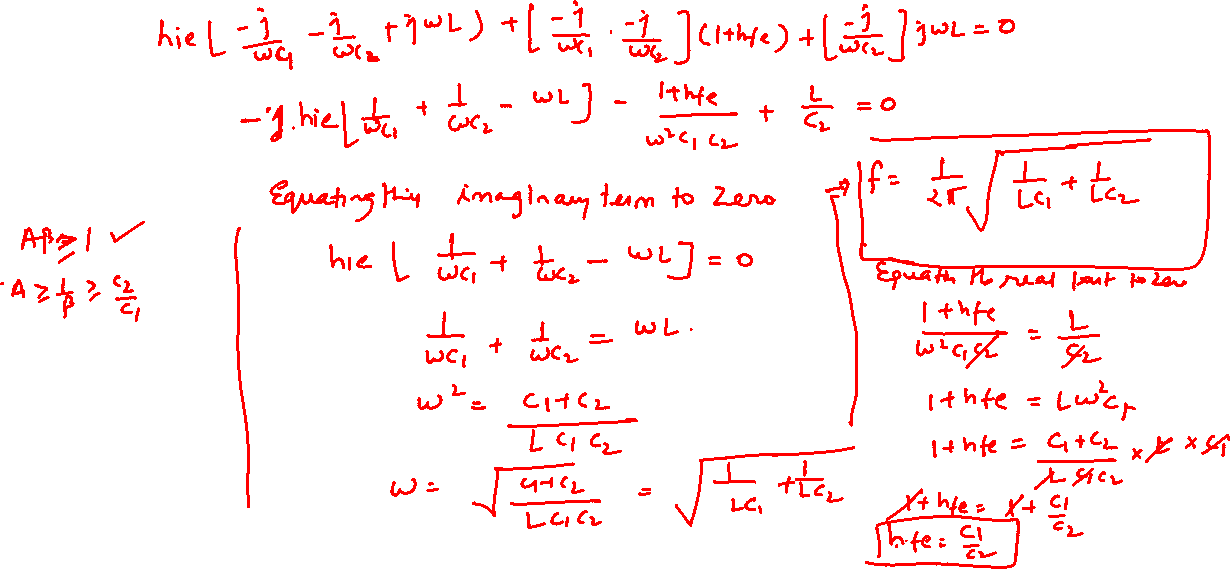 hie [ -j/ωC1 - j/ωC2 + jωL ) + [ -j/ωC1 · -j/ωC2 ] (1+hfe) + [ -j/ωC2 ] jωL = 0
-j.hie [ 1/ωC1 + 1/ωC2 - ωL ] - 1+hfe/ω²C1 C2 + L/C2 = 0
Equating this imaginary term to zero
hie [ 1/ωC1 + 1/ωC2 - ωL ] = 0
1/ωC1 + 1/ωC2 = ωL.
ω² = C1+C2/L C1 C2
ω = √(C1+C2/L C1 C2) = √(1/LC1 + 1/LC2)
Aβ ≥ 1 ✓
A ≥ 1/β ≥ C2/C1
→ f = 1/2π √(1/LC1 + 1/LC2)
Equatin the real part to zero
1+hfe/ω²C1C2 = L/C2
1+hfe = Lω²C1
1+hfe = C1+C2/L C1C2 × L × C1
1+hfe = 1+ C1/C2
hfe = C1/C2